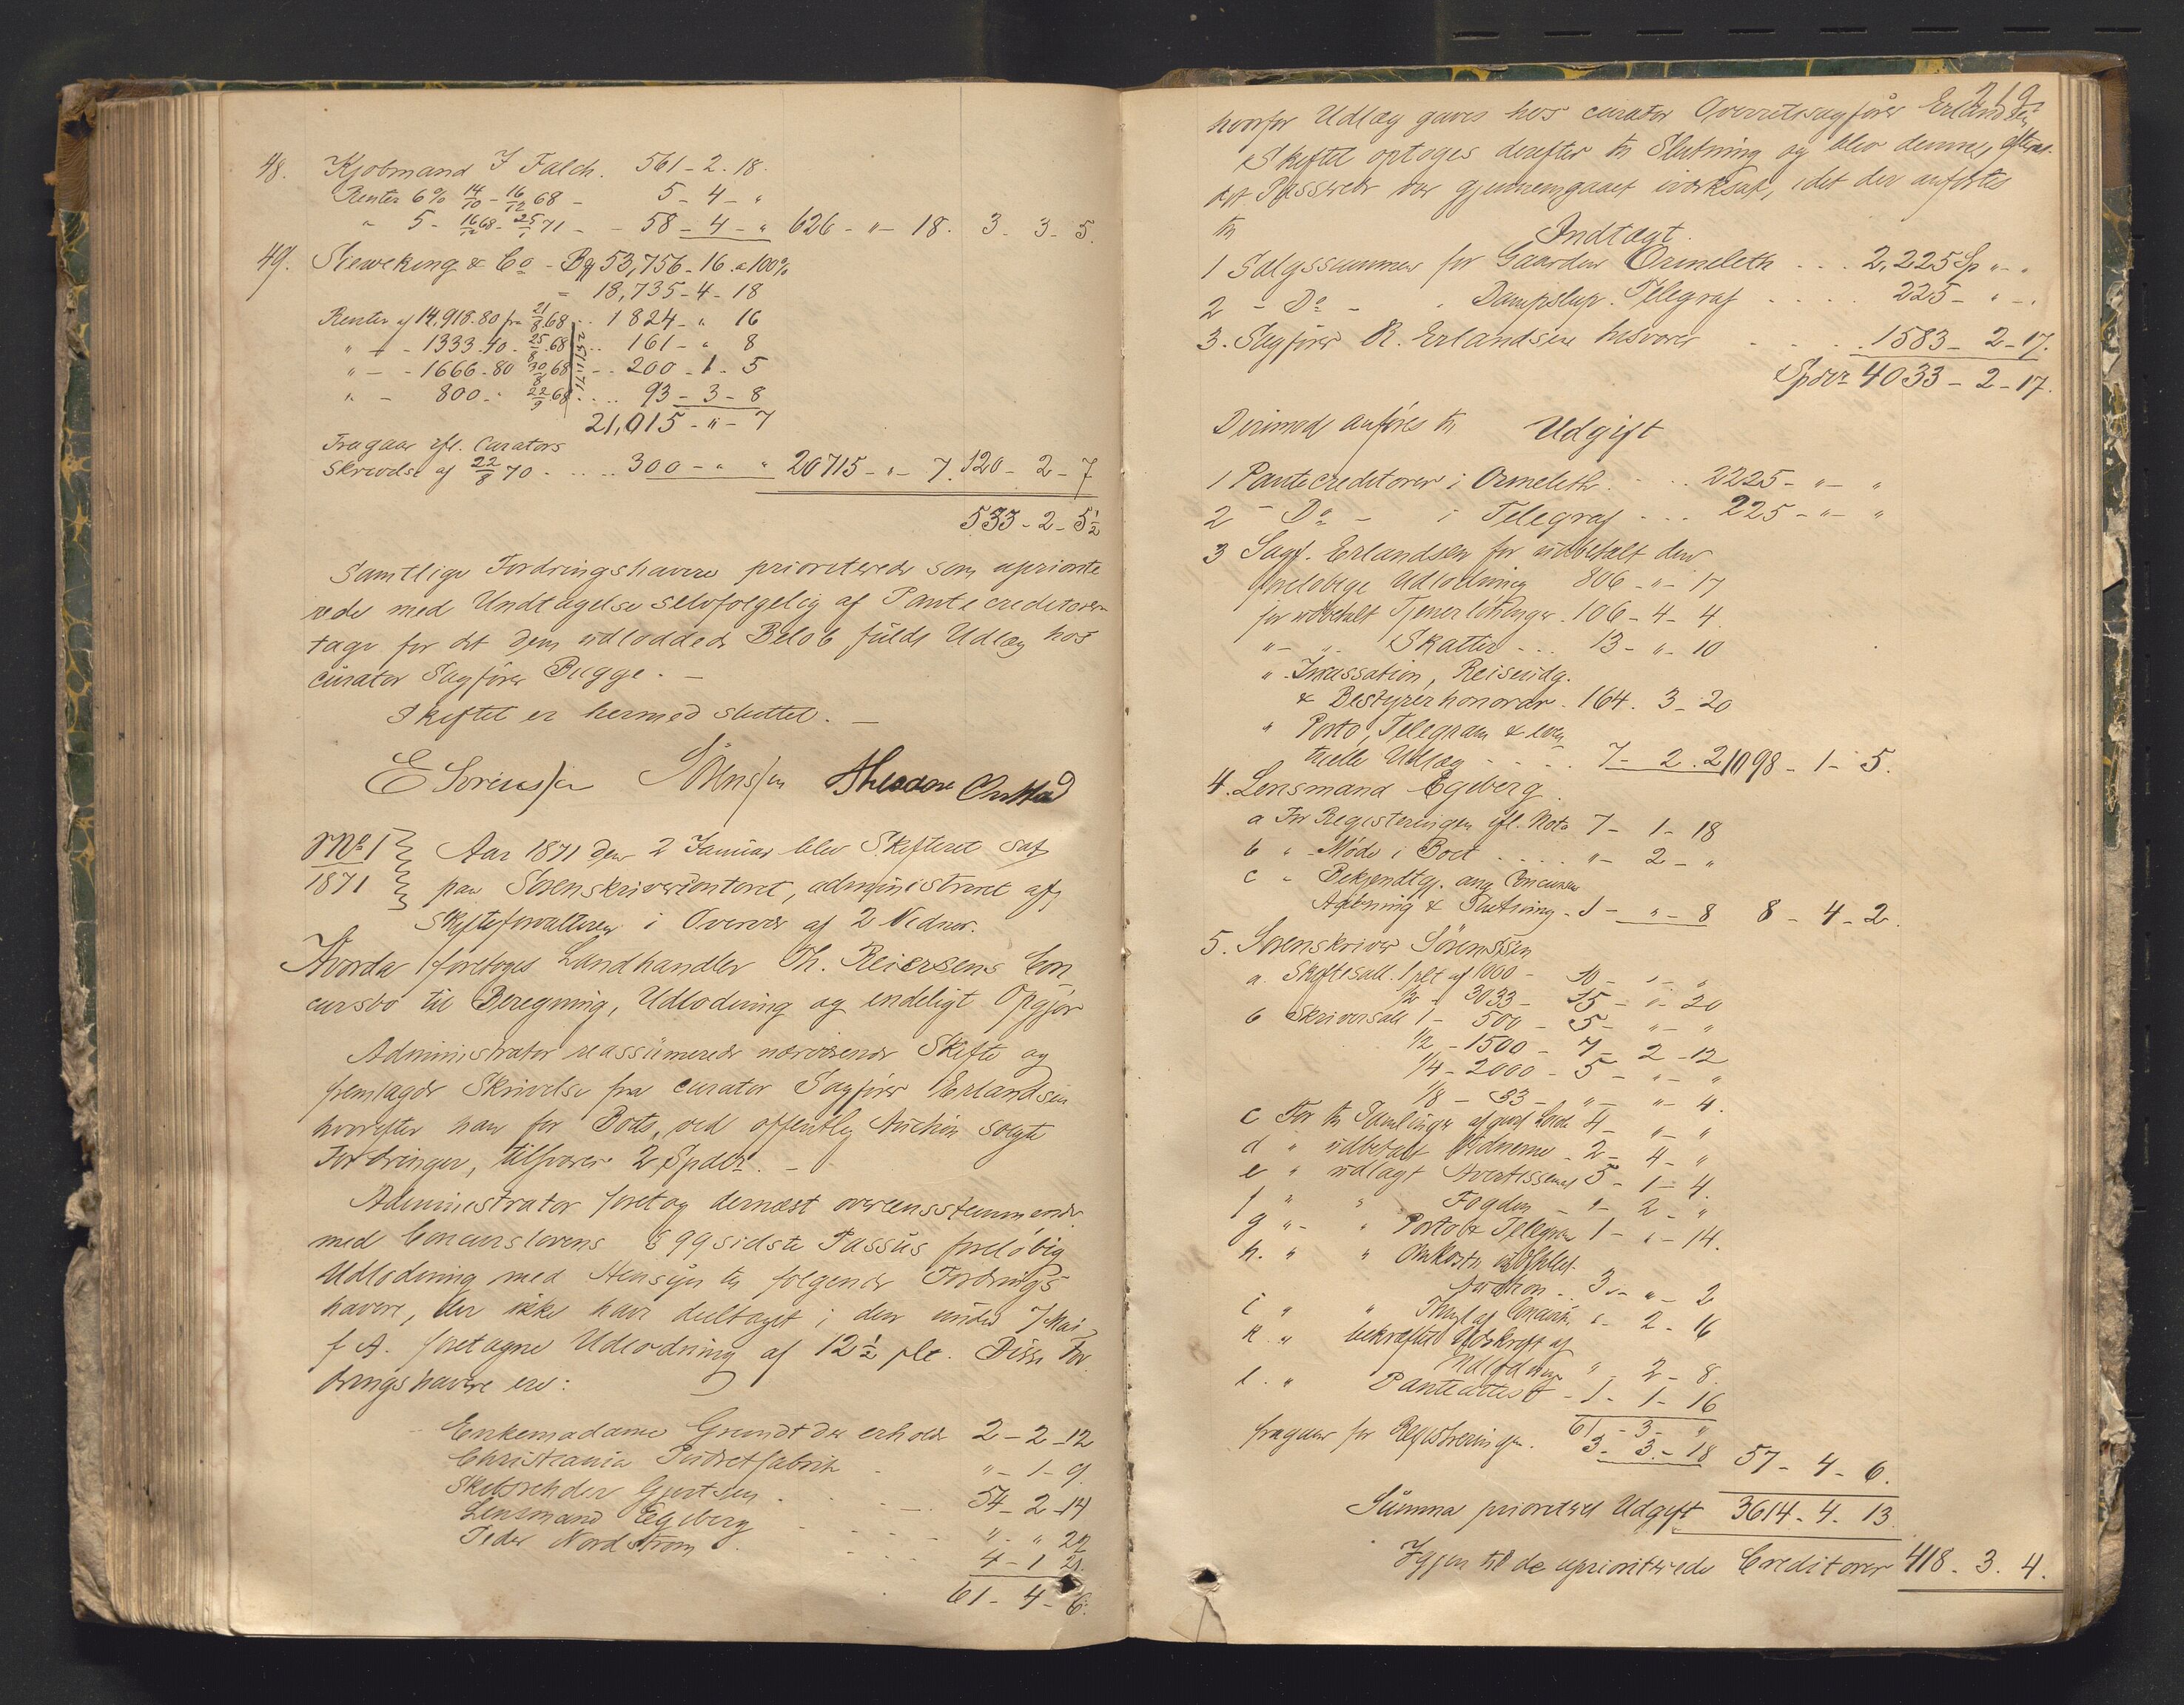 48. Kjøbmand J Falch. 561 - 2 - 18.
Renter 6% 14/10 - 16/12 68 - 5 - 4 - "
" 5 - 16/12 68 - 25/1 71 - - 58 - 4 - " 626 - " - 18. 3 - 3 - 5.
49. Sieweking & Co - Bg 53,756 - 16. a 100%
= 18,735 - 4 - 18
Renter af 14,918.80 fra 21/8 68 . . 1824 - " 16
" - - 1333.40 - 25/8 68 . . 161 - " 8
" - - 1666.80 30/8 68 . . 200 - 1 - 5
" - 800 - " 22/9 68 . . . . 93 - 3 - 8
25/1 71
21,015 - " - 7
Fragaar efl. Curators
Skrivelse af 22/8 70 . . . . 300 - " " 20715 - " - 7. 120 - 2 - 7
533 - 2 - 5 1/2
Samtlige Fordringshavere prioriterede som upriorite
rede med Undtagelse selvfølgelig af Pantecreditorer
tage for det dem udloddede Beløb fulde Udlæg hos
curator Sagfører Bugge. -
Skiftet er hermed sluttet. -
E Sørensen
No 1 Aar 1871 den 2 Januar blev Skifteret sat
1871 paa Sorenskrivercontoret, administreret af
Skifteforvalteren i Overvær af 2 Vidner.
Hvorda foretoges Landhandler Th. Reiersens Con
cursbo til Beregning, Udlodning og endeligt Opgjør
Administrator reassumerede nærværende Skifte og
fremlagde Skrivelse fra curator Sagfører Erlandsen
hvorefter han for Boets, ved offentlig Auction solgte
Fordringer, tilsvarer 2 Spdlr. -
Administrator foretog dernæst overeensstemmende
med Concurslovens § 99 sidste Passus foreløbig
Udlodning med Hensyn til følgende Fordrings
havere, der ikke have deeltaget i den under 7 Mai
f A. foretagne Udlodning af 12 1/2 pCt. Disse For
dringshavere ere:
Enkemadame Grundt der erholder 2 - 2 - 12
Christiania Pudretfabrik - " - 1 - 9.
Skibsrehder Gjertsen . . . 54 - 2 - 14
Lensmand Egeberg - - - " - " 22
Peder Nordstrøm . . . . 4 - 1 21.
61 - 4 - 6.
hvorfor Udlæg gaves hos curator Overretssagfører Erlandsen
Skiftet optoges derefter til Slutning og blev dennes, efterat
det Passerede var gjennemgaaet iværksat, idet der anførtes
til Indtægt.
1 Salgssummen for Gaarden Ormeleth . . . 2,225 Sp " - "
2 - Do - " Dampslup. Telegraf . . . . 225 - " - "
3. Sagfører R. Erlandsen tilsvarer . . . 1583 - 2 - 17.
Spdlr 4033 - 2 - 17.
Derimod anføres til Udgift
1 Pantecreditorer i Ormeleth . - . . 2225 - " - "
2 - Do - i Telegraf - . . 225 - " - "
3 Sagf. Erlandsen for udbetalt den
foreløbige Udlodning 806 - " - 17
for udbetalt Tjenerlønninger. 106 - 4 - 4.
" - " - Skatter - . . 13 - " - 10
" Incassation, Reiseudg.
& Bestyrerhonorar. 164. 3 - 20
" Porto, Telegram & even
tuelle Udlæg - - - - 7 - 2. 2 1098 - 1 - 5.
4. Lensmand Egeberg
a For Registeringen efl. Nota 7 - 1 - 18
b " - Møde i Boet . . . . " - 2 - "
c " Bekjendtg. ang Concursens
Aabning & Slutning - 1 - " - 8 8 - 4 - 2.
5. Sorenskriver Sørenssen
a. Skiftesall. 1 pCt af 1000 - 10 - " - "
1/2 - 3033 - 15 - " - 20
b Skriversall 1 - 500 - 5 - " - "
1/2 - 1500 - 7 - 2 - 12
1/4 - 2000 - 5 - " - "
1/8 - 33 - " - " - 4.
c For 4 - " - "
d " udbetalt Vidnerne - 2 - 4 - "
e " udlagt Avertissement 5 - 1 - 4.
f " " Fogden - " - 2 - "
g " - " Porto & Telegram 1 - " - 14.
h. " " Omkostn
Auction . . 3 - " - 2
i " " " - 2 - 16
k. " bekræftet Udskrift af
Udlodning " - 2 - 8.
l. " Panteattest - 1 - 1 - 16
61 - 3 - "
fragaar for Registreringen. 3 - 3 - 18 57 - 4 - 6.
Summa prioriteret Udgift 3614 - 4 - 13
Igjen til de uprioriterede Creditorer 418. 3. 4.